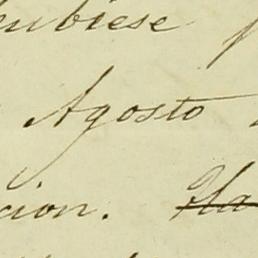 ubiese
Agosto
cion. Ha